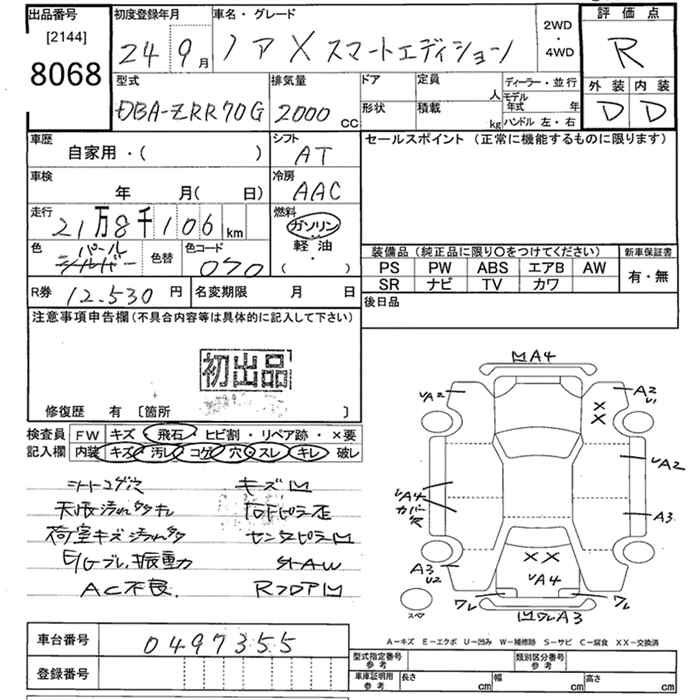 出品番号
[2144]
8068
初度登録年月
24 9月
車名・グレード
ノア X スマートエディション
2WD
・
4WD
評価点
R
外装 内装
D D
型式
DBA-ZRR70G
排気量
2000 CC
ドア
形状
定員
人
積載
kg
ディーラー・並行
モデル年式 年
ハンドル 左・右
車歴
自家用・( )
シフト
AT
車検
年 月( 日)
冷房
AAC
走行
21万8千106km
燃料
ガソリン
軽油
( ・ )
色
パール
シルバー
色替
色コード
070
R券 12.530円
名変期限 月 日
セールスポイント (正常に機能するものに限ります)
装備品 (純正品に限り○をつけてください)
新車保証書
PS PW ABS エアB AW
SR ナビ TV カワ
有・無
後日品
注意事項申告欄(不具合内容等は具体的に記入して下さい)
初出品
修復歴 有 〔箇所 〕
検査員記入欄
FW キズ 飛石・ヒビ割・リペア跡・×要
内装 キズ 汚レ コゲ 穴・スレ キレ 破レ
シートコゲ穴 キズM
天張汚れタキ
荷室キズ汚れタ センタピラーM
E/Gブレ、振動力 ステAW
AC不良. RフロアM
MA4
UA2
A2
U1
××
UA2
A3
UA4
カバー欠
A3
U2
××
UA4
ワレ
ワレ
Mワレ A3
スペ
A-キズ E-エクボ U-凹み W-補修跡 S-サビ C-腐食 XX-交換済
車台番号 0497355
登録番号
型式指定番号
参考
類別区分番号
参考
車庫証明用
参考
長さ cm
幅 cm
高さ cm